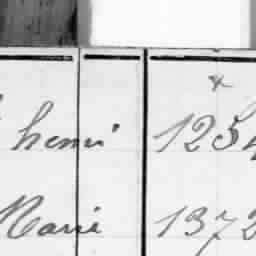 henri 1254
Marie 1372